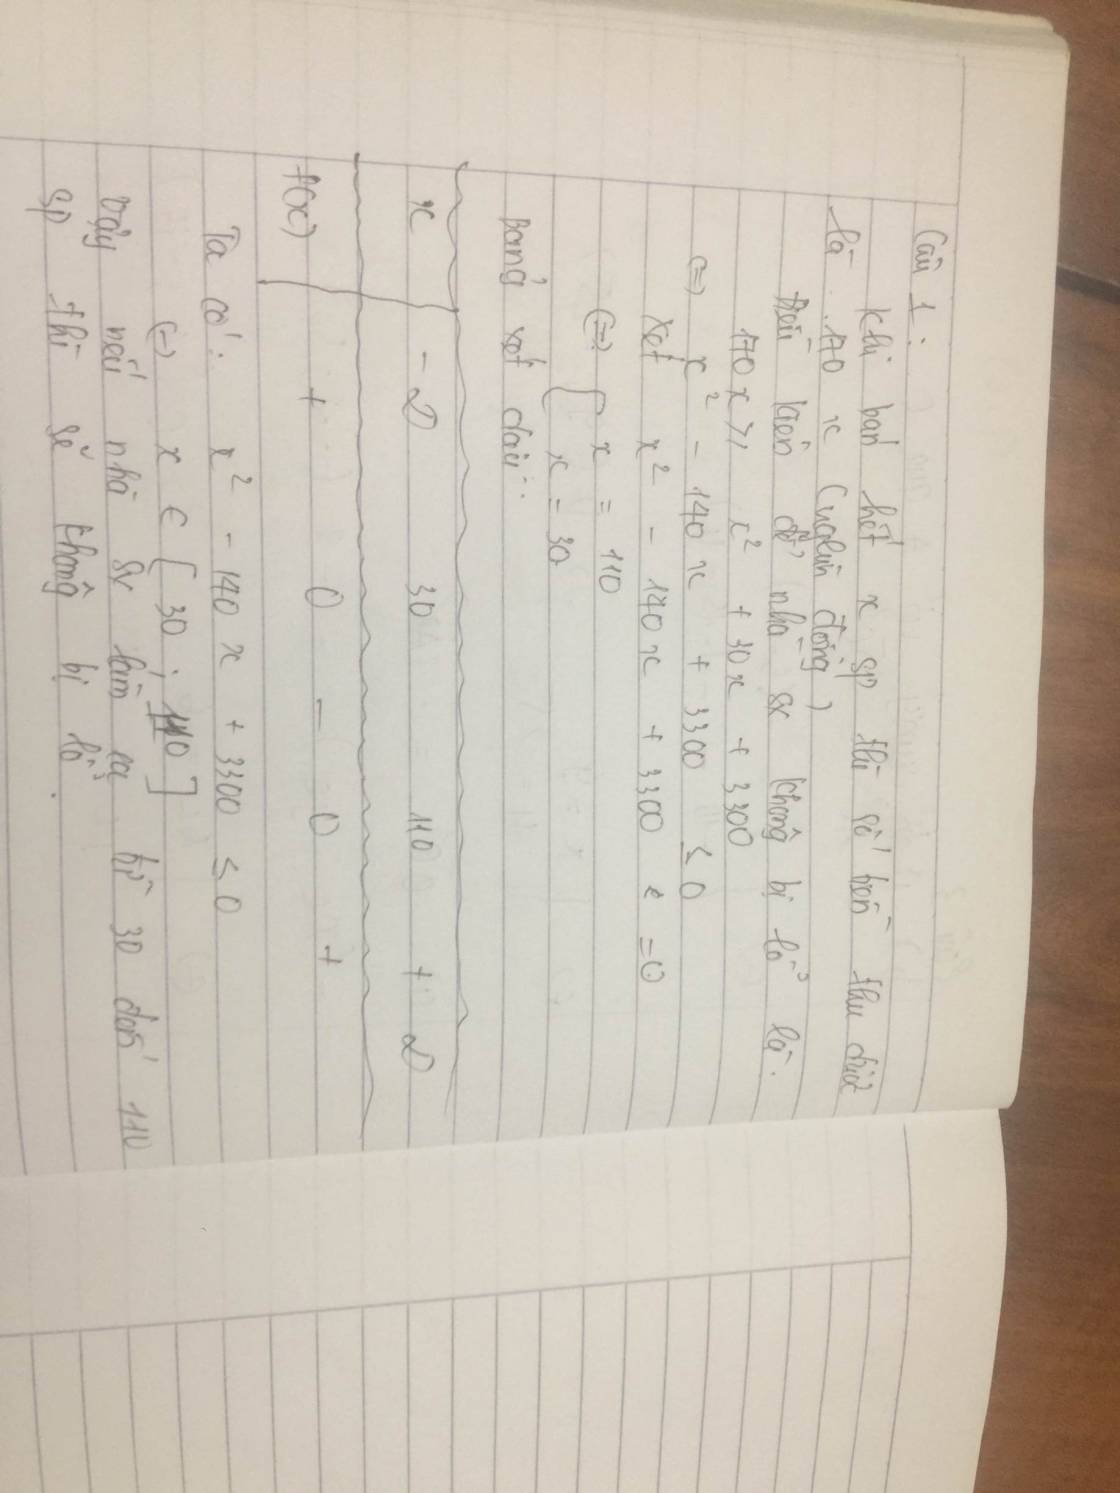 Câu 1:
Khi bán hết x sp thì số tiền thu được
là 170 x (nghìn đồng)
Điều kiện để nhà sx không bị lỗ là.
170x ≥ x² + 30x + 3300
(=) x² - 140x + 3300 ≤ 0
Xét x² - 140x + 3300 = 0
(=) [ x = 110
x = 30
Bảng xét dấu:
x -∞ 30 110 +∞
f(x) + 0 - 0 +
Ta có: x² - 140x + 3300 ≤ 0
(=) x ∈ [30; 110]
Vậy nếu nhà sx làm ra từ 30 đến 110
sp thì sẽ không bị lỗ.